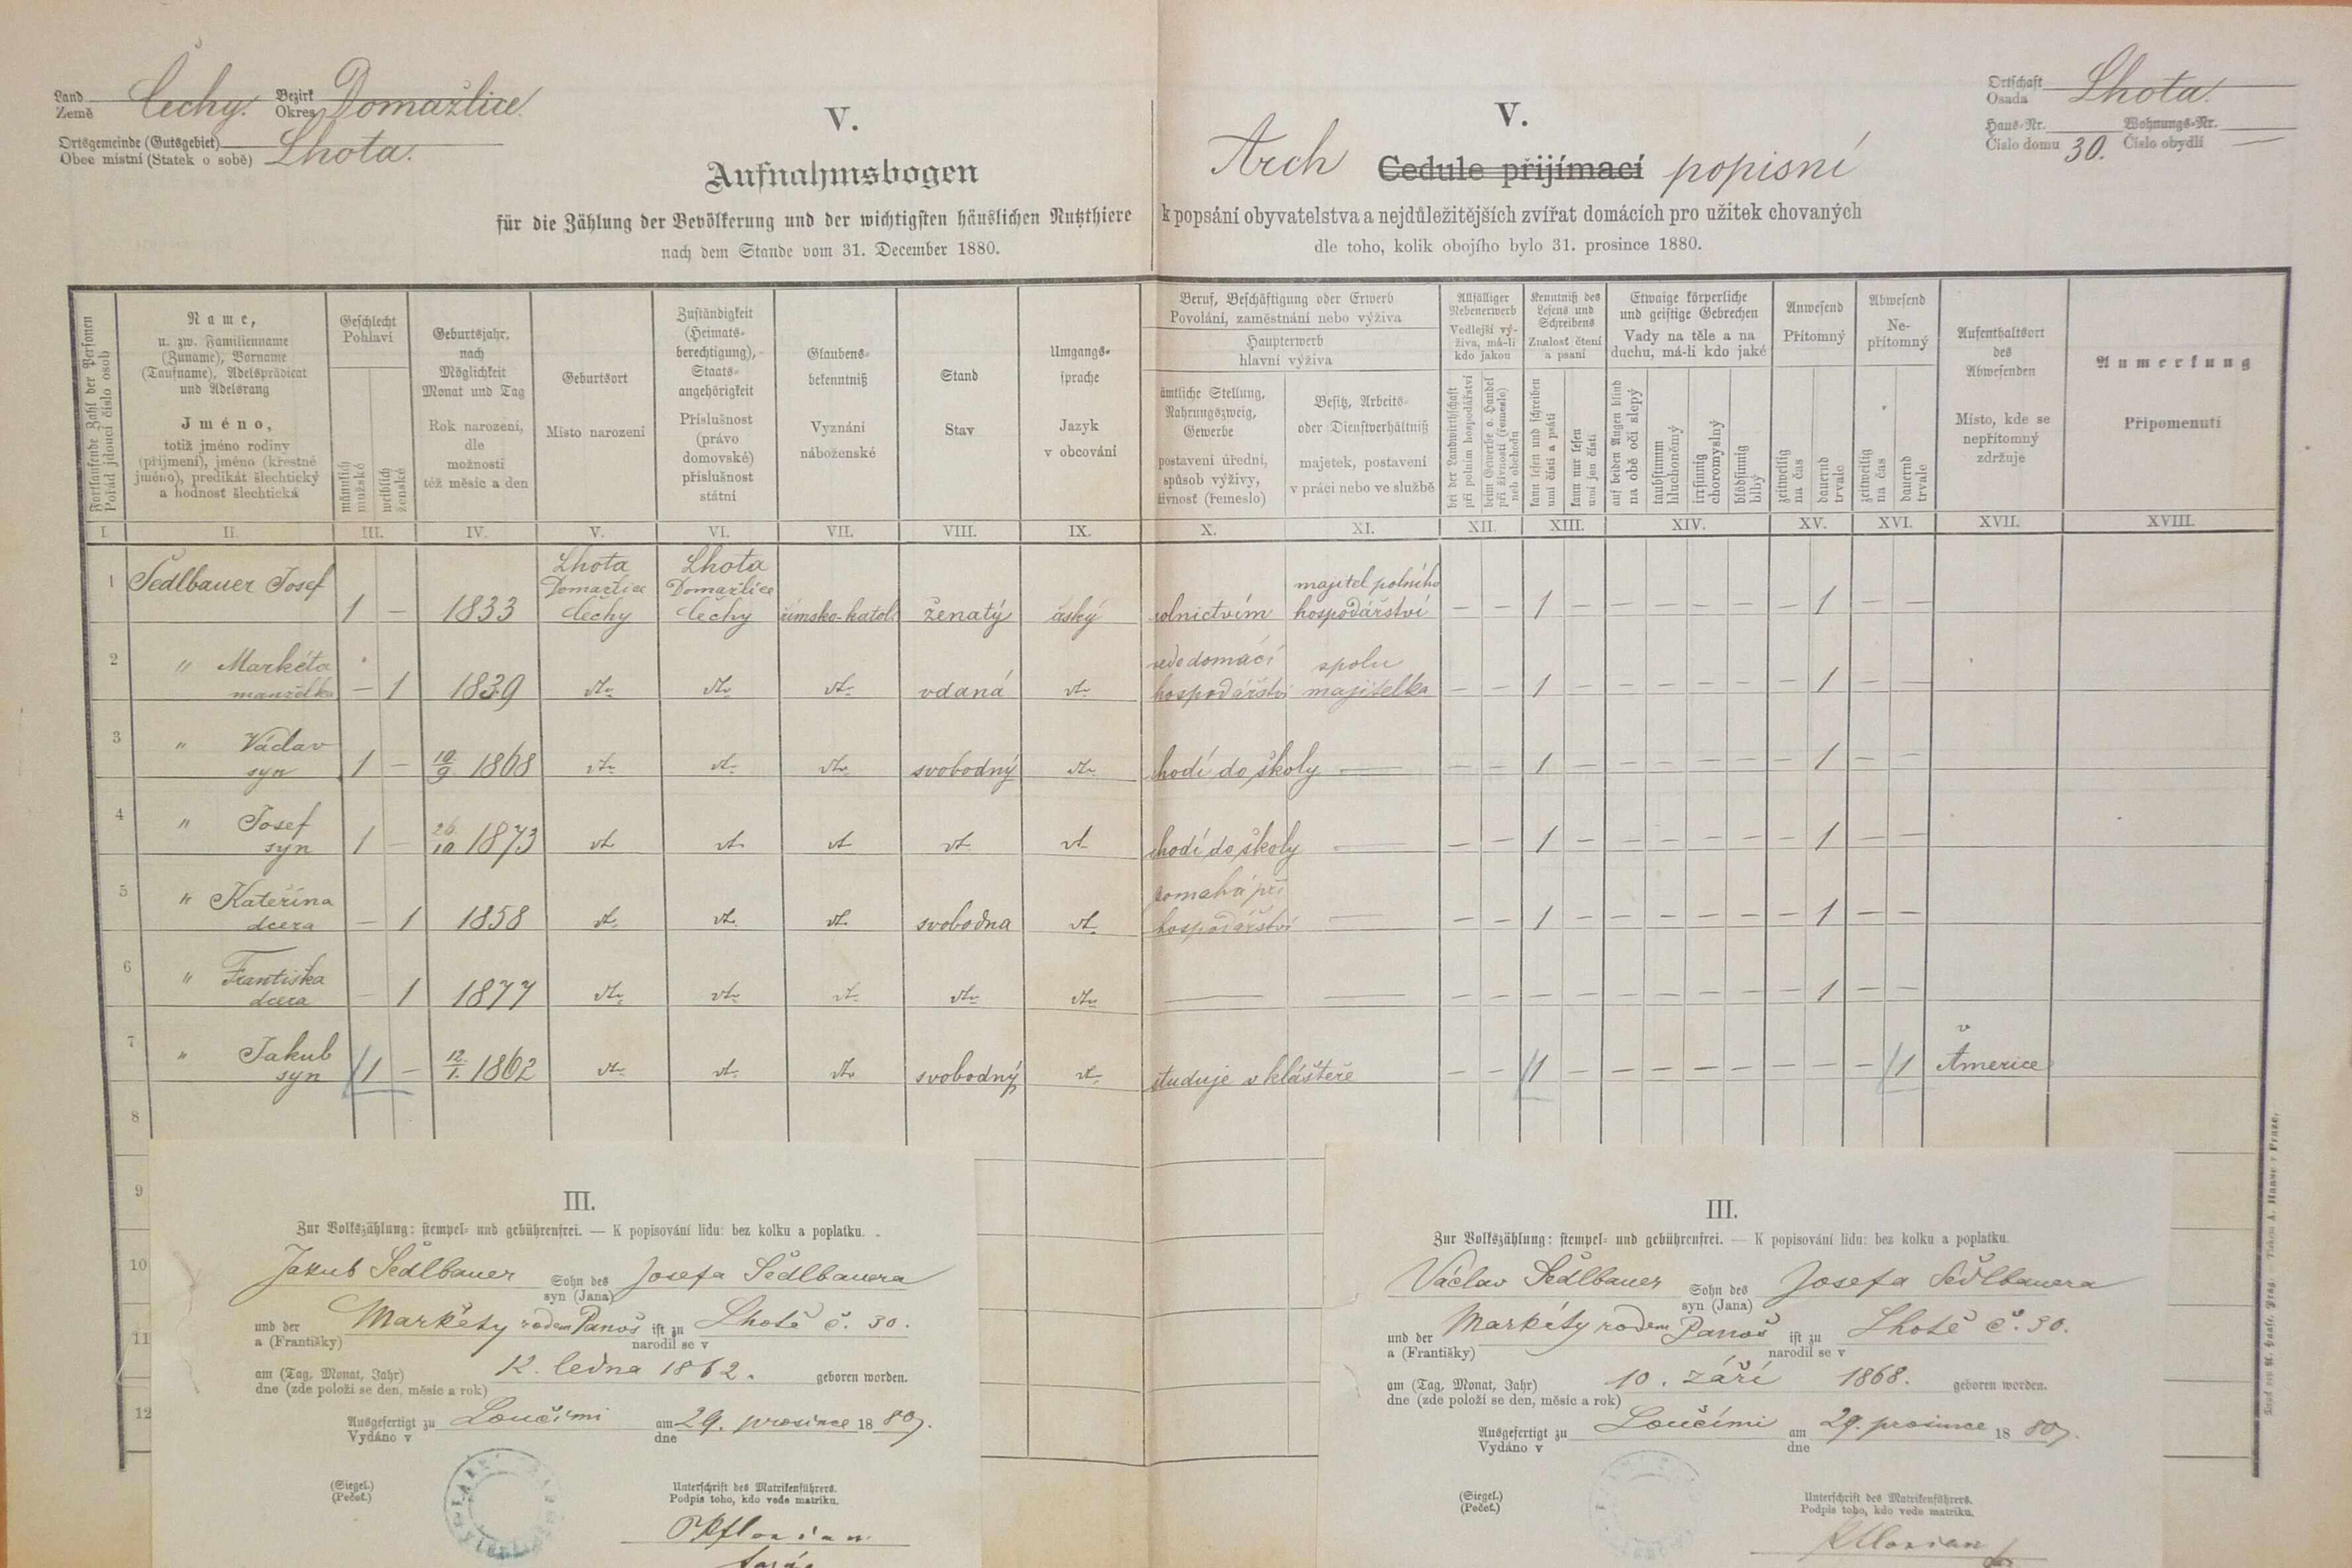 Land Čechy. Bezirk Domažlice.
Země Okres
Ortsgemeinde (Gutsgebiet) Lhota.
Obec místní (Statek o sobě)
V.
Aufnahmsbogen
für die Zählung der Bevölkerung und der wichtigsten häuslichen Nutzthiere
nach dem Stande vom 31. December 1880.
V.
Arch Cedule přijímací popisní
k popsání obyvatelstva a nejdůležitějších zvířat domácích pro užitek chovaných
dle toho, kolik obojího bylo 31. prosince 1880.
Ortschaft Lhota.
Osada
Haus-Nr. Wohnungs-Nr.
Číslo domu 30. Číslo obydlí —
Fortlaufende Zahl der Personen
Pořád jdoucí číslo osob
Name,
u. zw. Familienname
(Zuname), Vorname
(Taufname), Adelsprädicat
und Adelsrang
Jméno,
totiž jméno rodiny
(příjmení), jméno (křestné
jméno), predikát šlechtický
a hodnost šlechtická
Geschlecht
Pohlaví
männlich
mužské
weiblich
ženské
Geburtsjahr,
nach
Möglichkeit
Monat und Tag
Rok narození,
dle
možnosti
též měsíc a den
Geburtsort
Místo narození
Zuständigkeit
(Heimats-
berechtigung),
Staats-
angehörigkeit
Příslušnost
(právo
domovské)
příslušnost
státní
Glaubens-
bekenntniß
Vyznání
náboženské
Stand
Stav
Umgangs-
sprache
Jazyk
v obcování
Beruf, Beschäftigung oder Erwerb
Povolání, zaměstnání nebo výživa
Haupterwerb
hlavní výživa
ämtliche Stellung,
Nahrungszweig,
Gewerbe
postavení úřední,
způsob výživy,
živnost (řemeslo)
Besitz, Arbeits-
oder Dienstverhältniß
majetek, postavení
v práci nebo ve službě
Allfälliger
Nebenerwerb
Vedlejší vý-
živa, má-li
kdo jakou
bei der Landwirthschaft
při polním hospodářství
beim Gewerbe o. Handel
při živnosti (řemesle)
neb obchodu
Kenntniß des
Lesens und
Schreibens
Znalosť čtení
a psaní
kann lesen und schreiben
umí čísti a psáti
kann nur lesen
umí jen čísti
Etwaige körperliche
und geistige Gebrechen
Vady na těle a na
duchu, má-li kdo jaké
auf beiden Augen blind
na obě oči slepý
taubstumm
hluchoněmý
irrsinnig
choromyslný
blödsinnig
blbý
Anwesend
Přítomný
zeitweilig
na čas
dauernd
trvale
Abwesend
Ne-
přítomný
zeitweilig
na čas
dauernd
trvale
Aufenthaltsort
des
Abwesenden
Místo, kde se
nepřítomný
zdržuje
Anmerkung
Připomenutí
I. II. III. IV. V. VI. VII. VIII. IX. X. XI. XII. XIII. XIV. XV. XVI. XVII. XVIII.
Lhota Lhota
1 Sedlbauer Josef Domažlice Domažlice majitel polního
1 — 1833 Čechy Čechy římsko-katol. ženatý český rolnictvím hospodářství — — 1 — — — — — — 1 — —
2 " Markéta vede domácí spolu
manželka — 1 1839 dto dto dto vdaná dto hospodářství majitelka — — 1 — — — — — — 1 — —
3 " Václav
syn 1 — 10/9 1868 dto dto dto svobodný dto chodí do školy — — — 1 — — — — — — 1 — —
4 " Josef
syn 1 — 26/10 1873 dto dto dto dto dto chodí do školy — — — 1 — — — — — — 1 — —
5 " Kateřina pomahá při
dcera — 1 1858 dto dto dto svobodna dto hospodářství — — — 1 — — — — — — 1 — —
6 " Františka
dcera — 1 1877 dto dto dto dto dto — — — — — — — — — — — 1 — —
7 " Jakub v
syn 1 — 12/1. 1862 dto dto dto svobodný dto studuje v klášteře — — 1 — — — — — — — — 1 Americe
8
9
10
11
12
III.
Zur Volkszählung: stempel- und gebührenfrei. — K popisování lidu: bez kolku a poplatku.
Jakub Sedlbauer Sohn des Josefa Sedlbauera
syn (Jana)
und der Markéty rodem Panoš ist zu Lhotě č. 30.
a (Františky) narodil se v
am (Tag, Monat, Jahr) 12. ledna 1862. geboren worden.
dne (zde položí se den, měsíc a rok)
Ausgefertigt zu Loučími am 29. prosince 1880.
Vydáno v dne
(Siegel.) Unterschrift des Matrikenführers.
(Pečeť.) Podpis toho, kdo vede matriku.
III.
Zur Volkszählung: stempel- und gebührenfrei. — K popisování lidu: bez kolku a poplatku.
Václav Sedlbauer Sohn des Josefa Sedlbauera
syn (Jana)
und der Markéty rodem Panoš ist zu Lhotě č. 30.
a (Františky) narodil se v
am (Tag, Monat, Jahr) 10. září 1868. geboren worden.
dne (zde položí se den, měsíc a rok)
Ausgefertigt zu Loučími am 29. prosince 1880.
Vydáno v dne
(Siegel.) Unterschrift des Matrikenführers.
(Pečeť.) Podpis toho, kdo vede matriku.